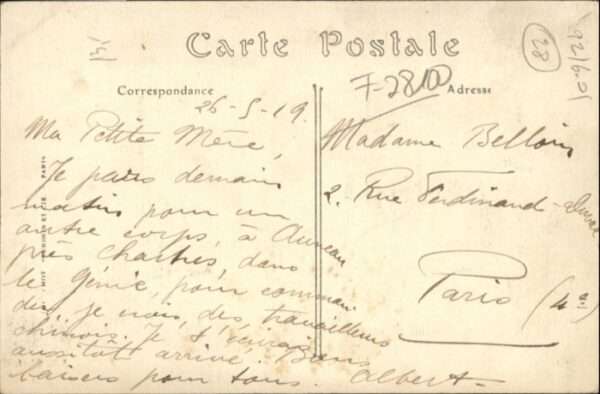 Carte Postale
28
F-2800
Correspondance
Adresse
26-5-19.
Ma Petite Mère,
Je pars demain
matin pour un
autre corps, à Auneau
près Chartres, dans
le Génie, pour comman
der, je crois, des travailleurs
chinois. Je t'écrirai
aussitôt arrivé. Bons
baisers pour tous. Albert
Madame Belloir
2. Rue Ferdinand-Duval
Paris (4e)